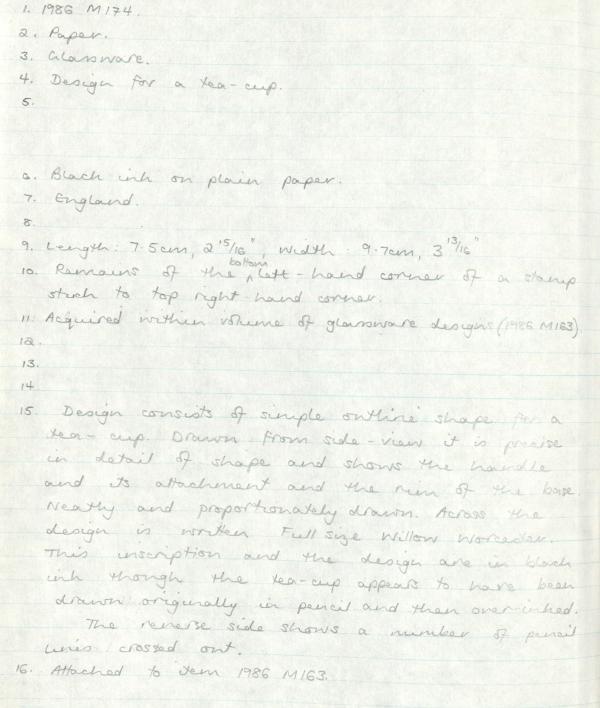 1. 1986 M174.
2. Paper.
3. Glassware.
4. Design for a tea-cup.
5.
6. Black ink on plain paper.
7. England.
8.
9. Length: 7.5cm, 2 15/16", width: 9.7cm, 3 13/16"
10. Remains of the bottom left-hand corner of a stamp
stuck to top right hand corner.
11. Acquired within volume of glassware designs (1986 M163)
12.
13.
14
15. Design consists of simple outline shape for a
tea-cup. Drawn from side-view it is precise
in detail of shape and shows the handle
and its attachment and the rim of the base.
Neatly and proportionately drawn. Across the
design is written Full size Willow Worcester.
This inscription and the design are in black
ink though the tea-cup appears to have been
drawn originally in pencil and then over-inked.
The reverse side shows a number of pencil
lines crossed out.
16. Attached to item 1986 M163.